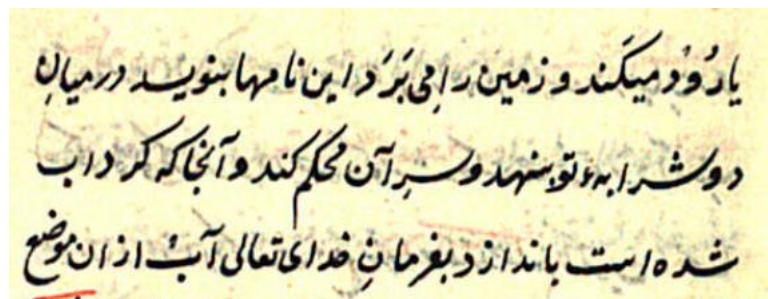 یا رُوْد میکَند و زمین را می بَرَد این نامها بنوید در میانِ
دو شرابهء نو بنهد و سرِ آن محکم کند و آنجا که کرداب
شده است باندازد بفرمانِ خدای تعالی آب از ان موضع